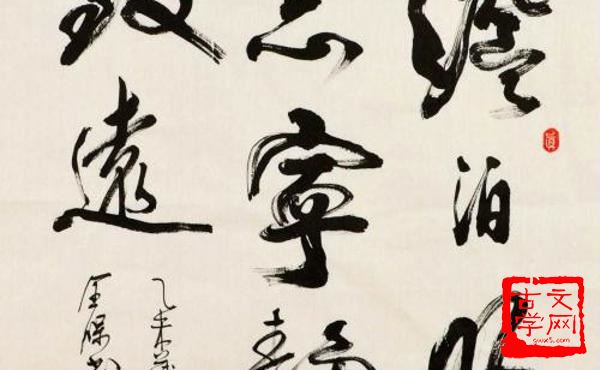 澹泊明
志寧靜
致遠
乙未
古文
学网
gwx5.com